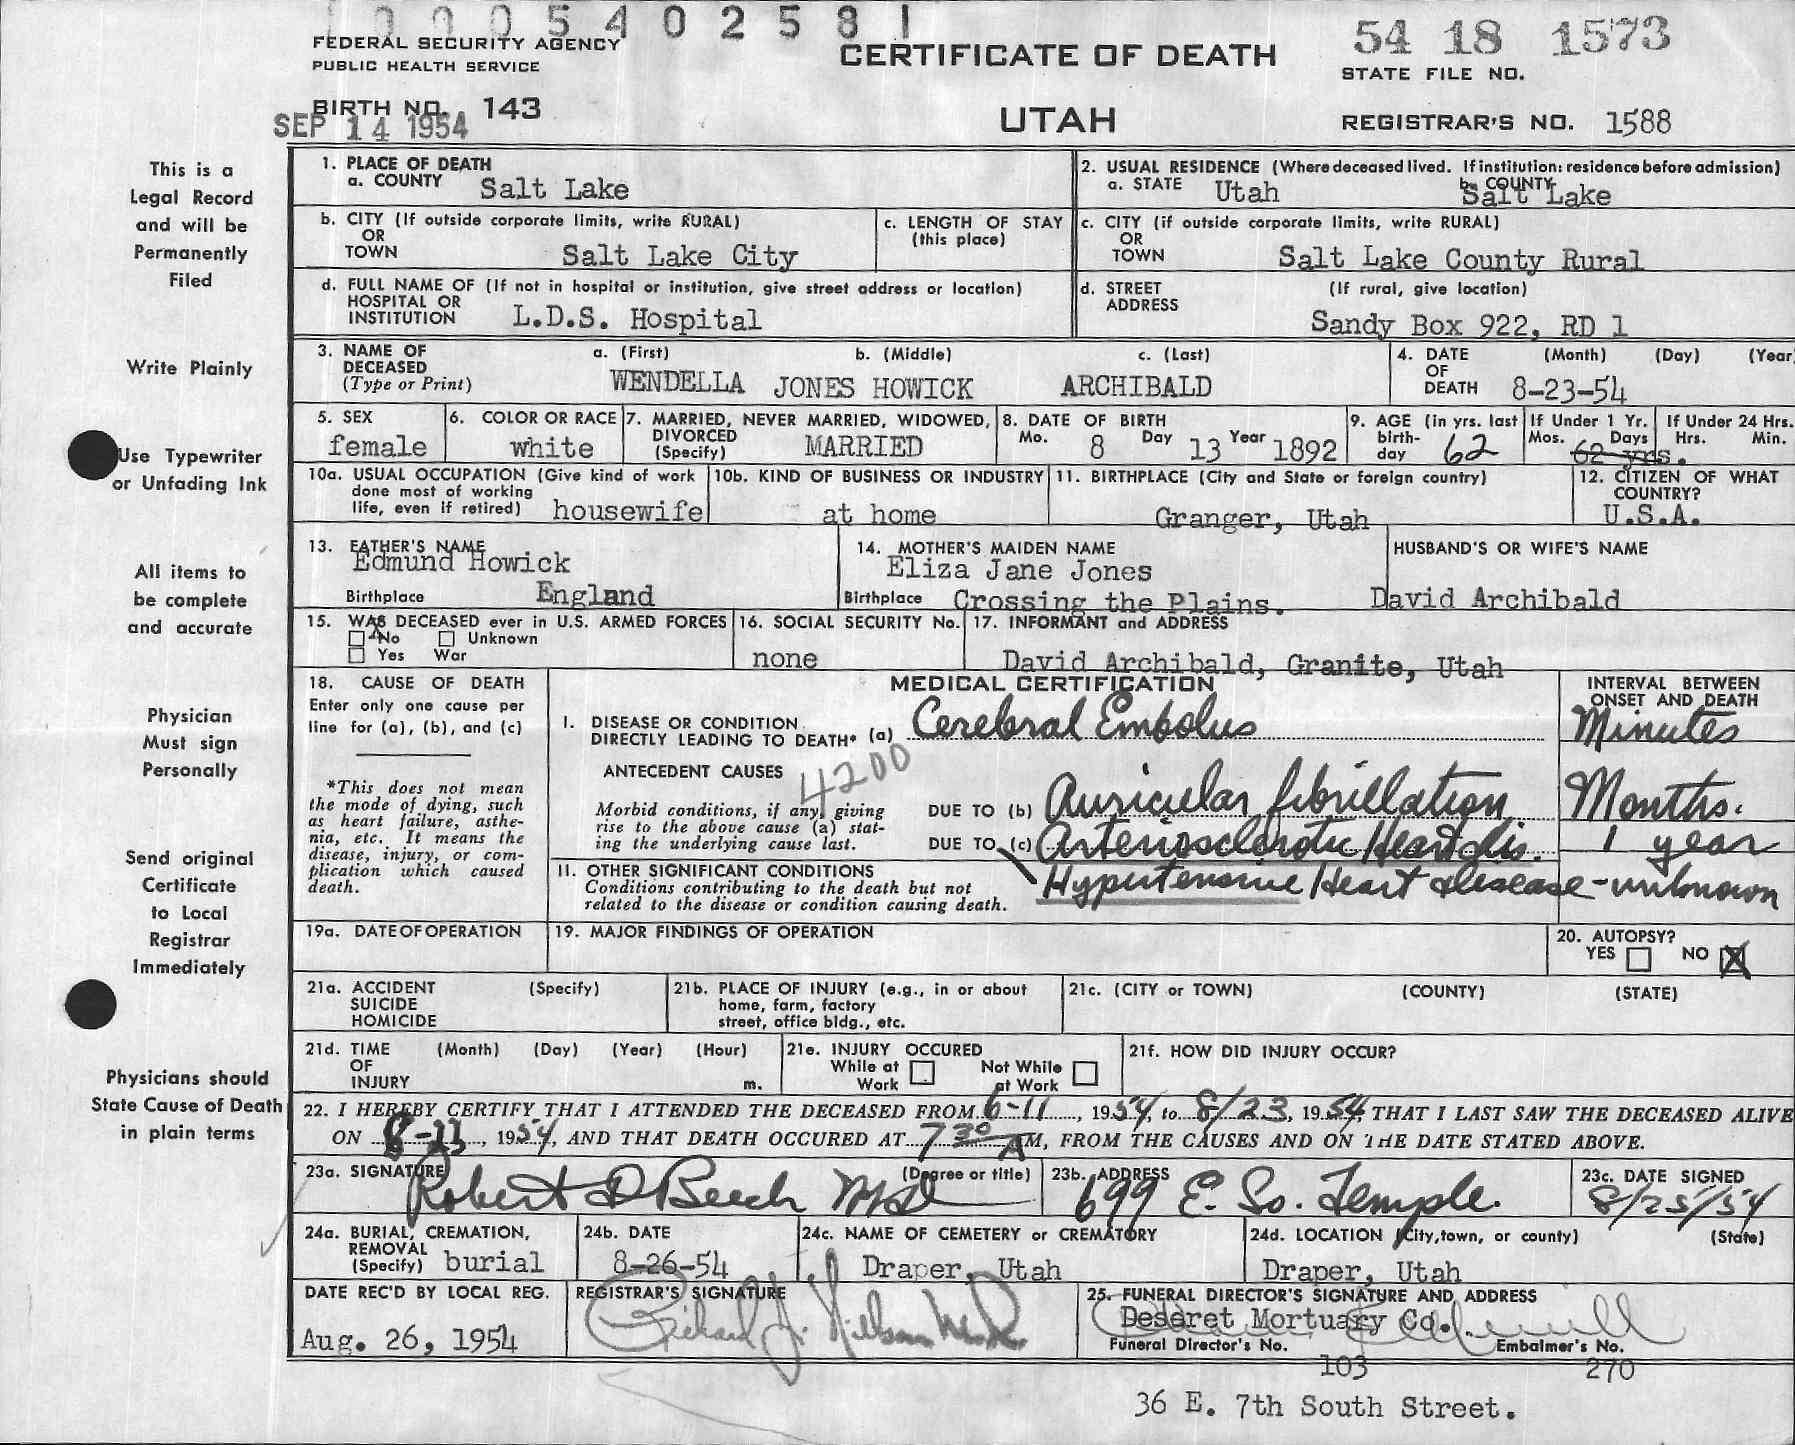 0 0 0 5 4 0 2 5 8 1
FEDERAL SECURITY AGENCY
PUBLIC HEALTH SERVICE
CERTIFICATE OF DEATH
54 18 1573
STATE FILE NO.
BIRTH NO. 143
SEP 14 1954
UTAH
REGISTRAR'S NO. 1588
This is a
Legal Record
and will be
Permanently
Filed
Write Plainly
Use Typewriter
or Unfading Ink
All items to
be complete
and accurate
Physician
Must sign
Personally
Send original
Certificate
to Local
Registrar
Immediately
Physicians should
State Cause of Death
in plain terms
1. PLACE OF DEATH
a. COUNTY Salt Lake
2. USUAL RESIDENCE (Where deceased lived. If institution: residence before admission)
a. STATE Utah b. COUNTY Salt Lake
b. CITY (If outside corporate limits, write RURAL)
OR
TOWN Salt Lake City
c. LENGTH OF STAY
(this place)
c. CITY (if outside corporate limits, write RURAL)
OR
TOWN Salt Lake County Rural
d. FULL NAME OF (If not in hospital or institution, give street address or location)
HOSPITAL OR
INSTITUTION L.D.S. Hospital
d. STREET (If rural, give location)
ADDRESS
Sandy Box 922, RD 1
3. NAME OF DECEASED
(Type or Print)
a. (First) b. (Middle) c. (Last)
WENDELLA JONES HOWICK ARCHIBALD
4. DATE (Month) (Day) (Year
OF
DEATH 8-23-54
5. SEX
female
6. COLOR OR RACE
white
7. MARRIED, NEVER MARRIED, WIDOWED,
DIVORCED
(Specify) MARRIED
8. DATE OF BIRTH
Mo. 8 Day 13 Year 1892
9. AGE (in yrs. last
birth-
day 62
If Under 1 Yr.
Mos. Days
62 yrs.
If Under 24 Hrs.
Hrs. Min.
10a. USUAL OCCUPATION (Give kind of work
done most of working
life, even if retired) housewife
10b. KIND OF BUSINESS OR INDUSTRY
at home
11. BIRTHPLACE (City and State or foreign country)
Granger, Utah
12. CITIZEN OF WHAT
COUNTRY?
U.S.A.
13. FATHER'S NAME
Edmund Howick
Birthplace England
14. MOTHER'S MAIDEN NAME
Eliza Jane Jones
Birthplace Crossing the Plains.
HUSBAND'S OR WIFE'S NAME
David Archibald
15. WAS DECEASED ever in U.S. ARMED FORCES
X No Unknown
Yes War
16. SOCIAL SECURITY No.
none
17. INFORMANT and ADDRESS
David Archibald, Granite, Utah
18. CAUSE OF DEATH
Enter only one cause per
line for (a), (b), and (c)
*This does not mean
the mode of dying, such
as heart failure, asthe-
nia, etc. It means the
disease, injury, or com-
plication which caused
death.
MEDICAL CERTIFICATION
INTERVAL BETWEEN
ONSET AND DEATH
I. DISEASE OR CONDITION
DIRECTLY LEADING TO DEATH* (a) Cerebral Embolus Minutes
ANTECEDENT CAUSES 4200
Morbid conditions, if any, giving
rise to the above cause (a) stat-
ing the underlying cause last.
DUE TO (b) Auricular fibrillation Months.
DUE TO (c) Arteriosclerotic Heart dis. 1 year
Hypertensive Heart disease - unknown
11. OTHER SIGNIFICANT CONDITIONS
Conditions contributing to the death but not
related to the disease or condition causing death.
19a. DATE OF OPERATION
19. MAJOR FINDINGS OF OPERATION
20. AUTOPSY?
YES NO X
21a. ACCIDENT (Specify)
SUICIDE
HOMICIDE
21b. PLACE OF INJURY (e.g., in or about
home, farm, factory
street, office bldg., etc.
21c. (CITY or TOWN) (COUNTY) (STATE)
21d. TIME (Month) (Day) (Year) (Hour)
OF
INJURY m.
21e. INJURY OCCURED
While at Work Not While at Work
21f. HOW DID INJURY OCCUR?
22. I HEREBY CERTIFY THAT I ATTENDED THE DECEASED FROM 6-11, 1954, to 8/23, 1954, THAT I LAST SAW THE DECEASED ALIVE
ON 8-23, 1954, AND THAT DEATH OCCURED AT 7 30 AM, FROM THE CAUSES AND ON THE DATE STATED ABOVE.
23a. SIGNATURE (Degree or title)
Robert D Beech MD
23b. ADDRESS
699 E. So. Temple.
23c. DATE SIGNED
8/25/54
24a. BURIAL, CREMATION,
REMOVAL
(Specify) burial
24b. DATE
8-26-54
24c. NAME OF CEMETERY or CREMATORY
Draper, Utah
24d. LOCATION (City, town, or county) (State)
Draper, Utah
DATE REC'D BY LOCAL REG.
Aug. 26, 1954
REGISTRAR'S SIGNATURE
Richard J. Nelson
25. FUNERAL DIRECTOR'S SIGNATURE AND ADDRESS
Deseret Mortuary Co.
Funeral Director's No. Embalmer's No.
103 270
36 E. 7th South Street.